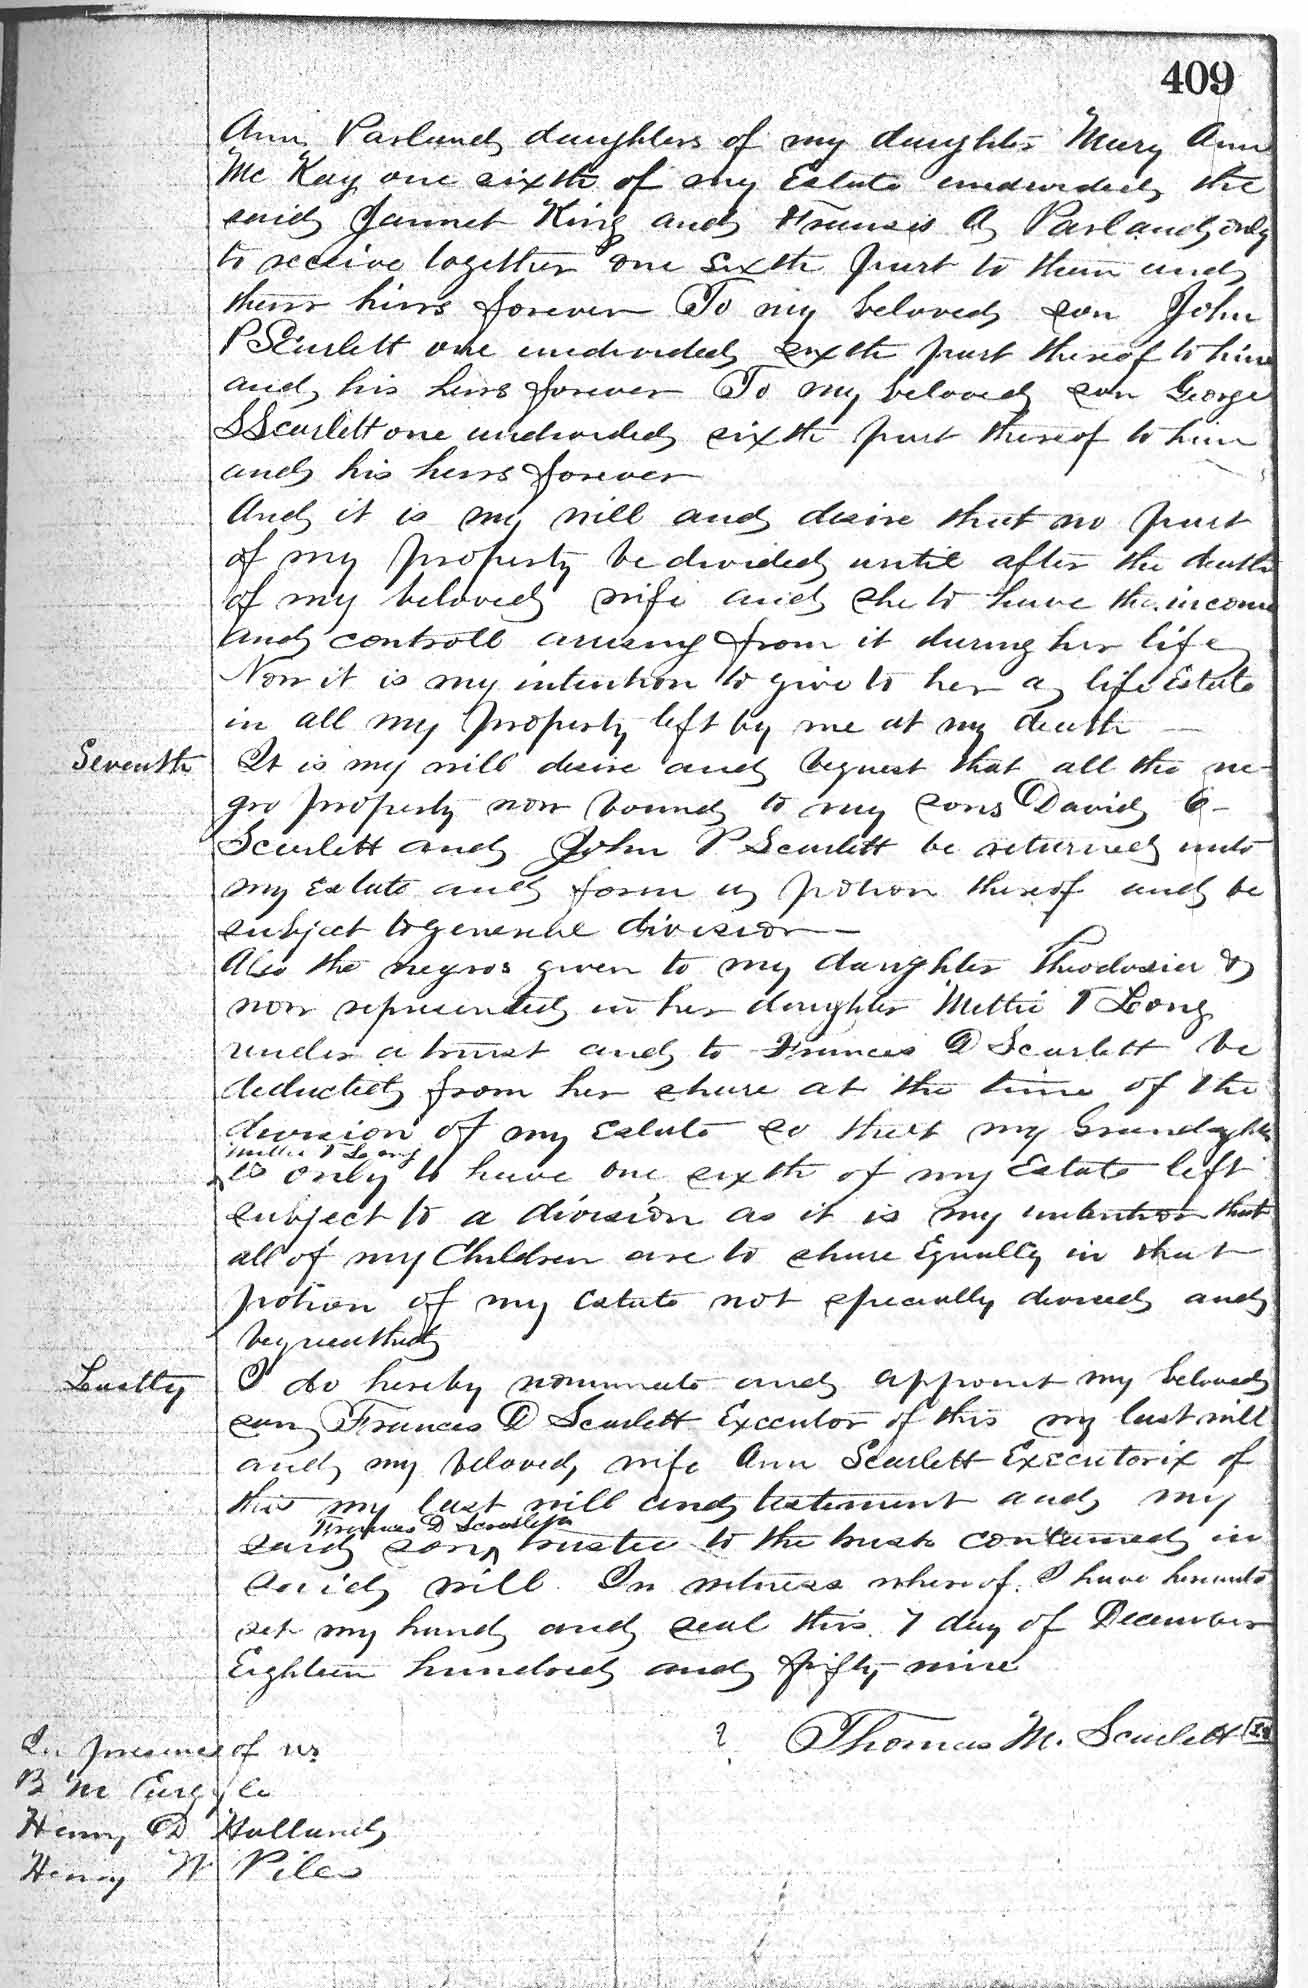 409
Ann Parland daughters of my daughter Mary Ann
Mc Kay one sixth of my Estate undivided the
said Jannet King and Francis A Parland only
to receive together one sixth part to them and
their hirs forever To my beloved son John
P Scarlett one undivided sixth part thereof to him
and his heirs forever To my beloved son George
S Scarlett one undivided sixth part thereof to him
and his heirs forever
And it is my will and desire that no part
of my property be divided until after the death
of my beloved wife and she to have the income
and controll arising from it during her life
Now it is my intention to give to her a life Estate
in all my property left by me at my death —
Seventh It is my will desire and bequest that all the ne-
gro property now bound to my sons David C-
Scarlett and John P Scarlett be returned into
my Estate and form a potion thereof and be
subject to general division —
Also the negros given to my daughter Theodosier &
now represented in her daughter Mettie T Long
under a trust and to Frances D Scarlett be
deducted from her share at the time of the
division of my Estate so that my Grandaughter
Mettie T Long
is only to have one sixth of my Estate left
subject to a division as it is my intention that
all of my Children are to share Equally in that
potion of my Estate not specially divised and
bequeathed
Lastly I do hereby nominate and appoint my beloved
son Frances D Scarlett Executor of this my last will
and my beloved wife Ann Scarlett Executorix of
this my last will and testement and my
Frances D Scarlett
said son ^ trustee to the trusts contained in
said will. In witness whereof. I have hereunto
set my hand and seal this 7 day of December
Eighteen hundred and fifty nine
? Thomas M. Scarlett LS
In presence of us
B M
Henry D Holland
Henry W Piles